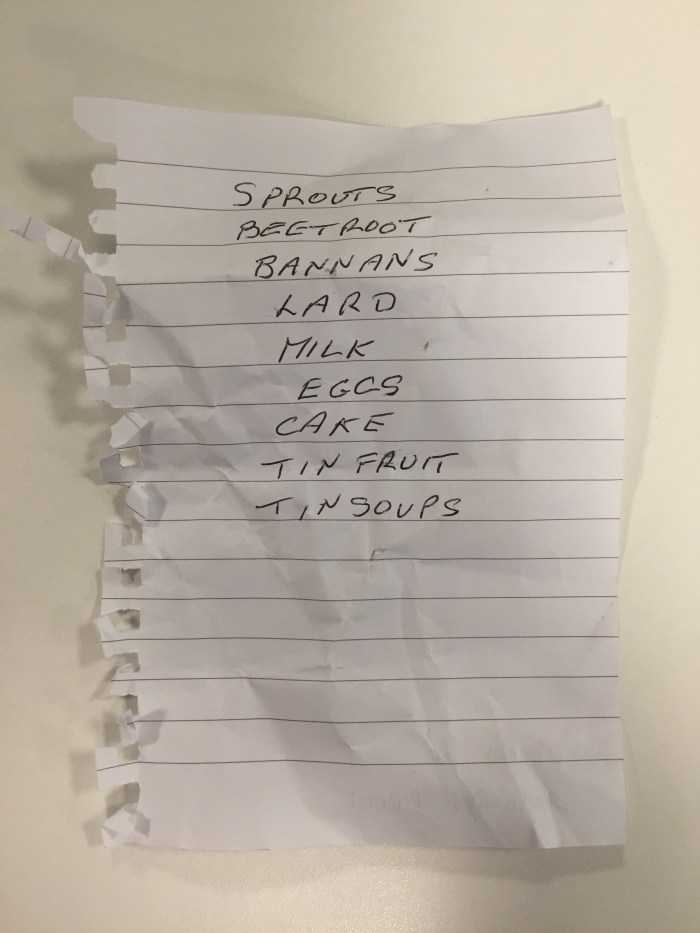 SPROUTS
BEETROOT
BANNANS
LARD
MILK
EGGS
CAKE
TIN FRUIT
TIN SOUPS